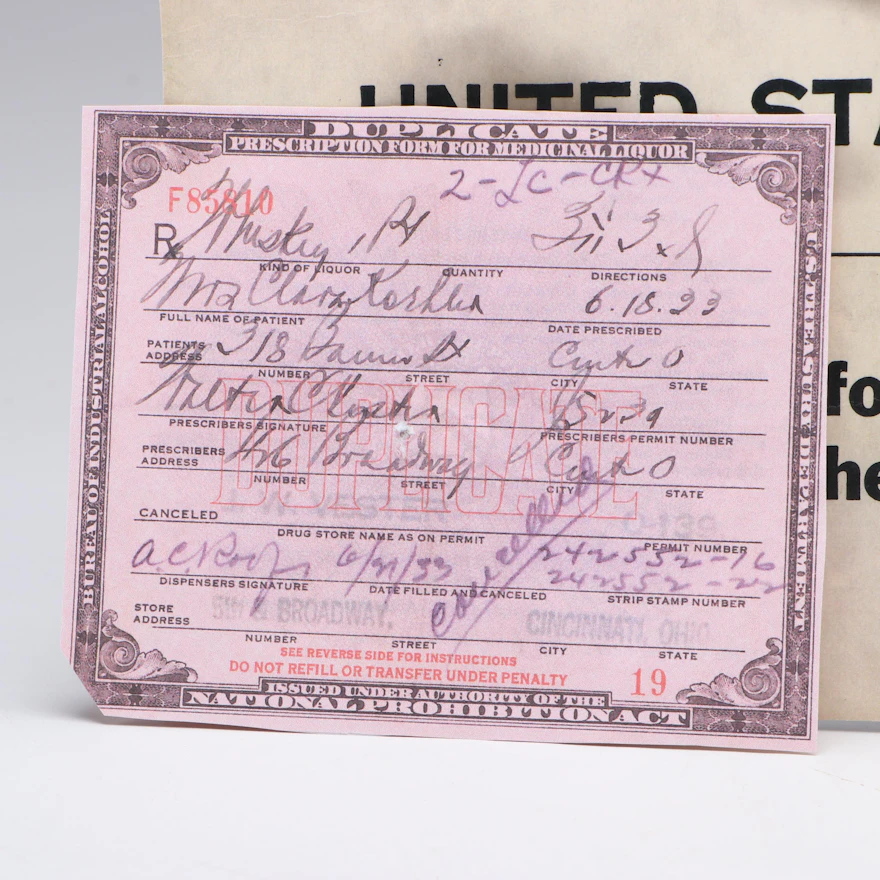 UNITED STA
fo
he
DUPLICATE
PRESCRIPTION FORM FOR MEDICINAL LIQUOR
BUREAU OF INDUSTRIAL ALCOHOL
U.S. TREASURY DEPARTMENT
F85810
Rx Whiskey, Pt
KIND OF LIQUOR QUANTITY DIRECTIONS
Mrs Clara Koehler 6.18.33
FULL NAME OF PATIENT DATE PRESCRIBED
PATIENTS ADDRESS 318 St O
NUMBER STREET CITY STATE
DUPLICATE
Walter
PRESCRIBERS SIGNATURE PRESCRIBERS PERMIT NUMBER
PRESCRIBERS ADDRESS Broadway O
NUMBER STREET CITY STATE
CANCELED
DRUG STORE NAME AS ON PERMIT PERMIT NUMBER
cancelled
A.C. 6/21/33 242552-16
242552-22
DISPENSERS SIGNATURE DATE FILLED AND CANCELED STRIP STAMP NUMBER
STORE ADDRESS 5TH & BROADWAY, CINCINNATI, OHIO
NUMBER STREET CITY STATE
SEE REVERSE SIDE FOR INSTRUCTIONS
DO NOT REFILL OR TRANSFER UNDER PENALTY 19
ISSUED UNDER AUTHORITY OF THE
NATIONAL PROHIBITION ACT